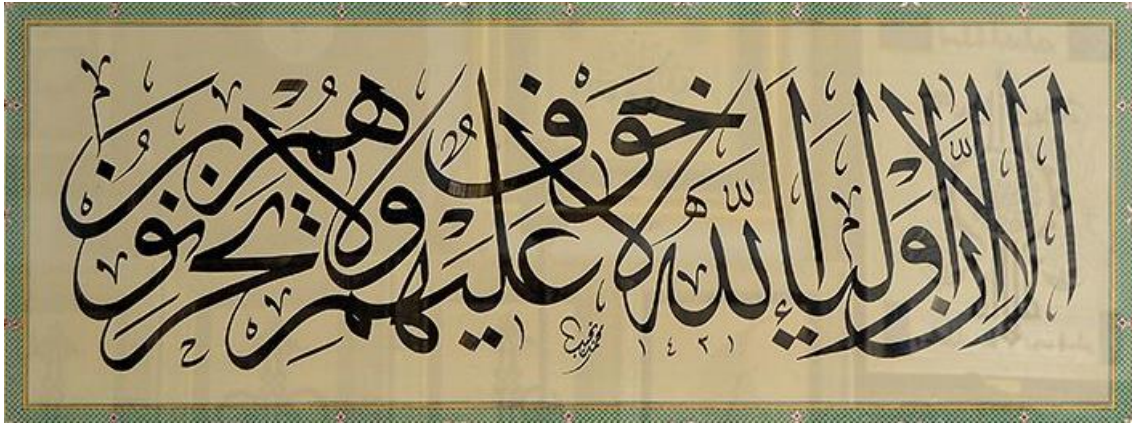 ألا إن أولياء الله لا خوف عليهم ولا هم يحزنون
١٤٢١